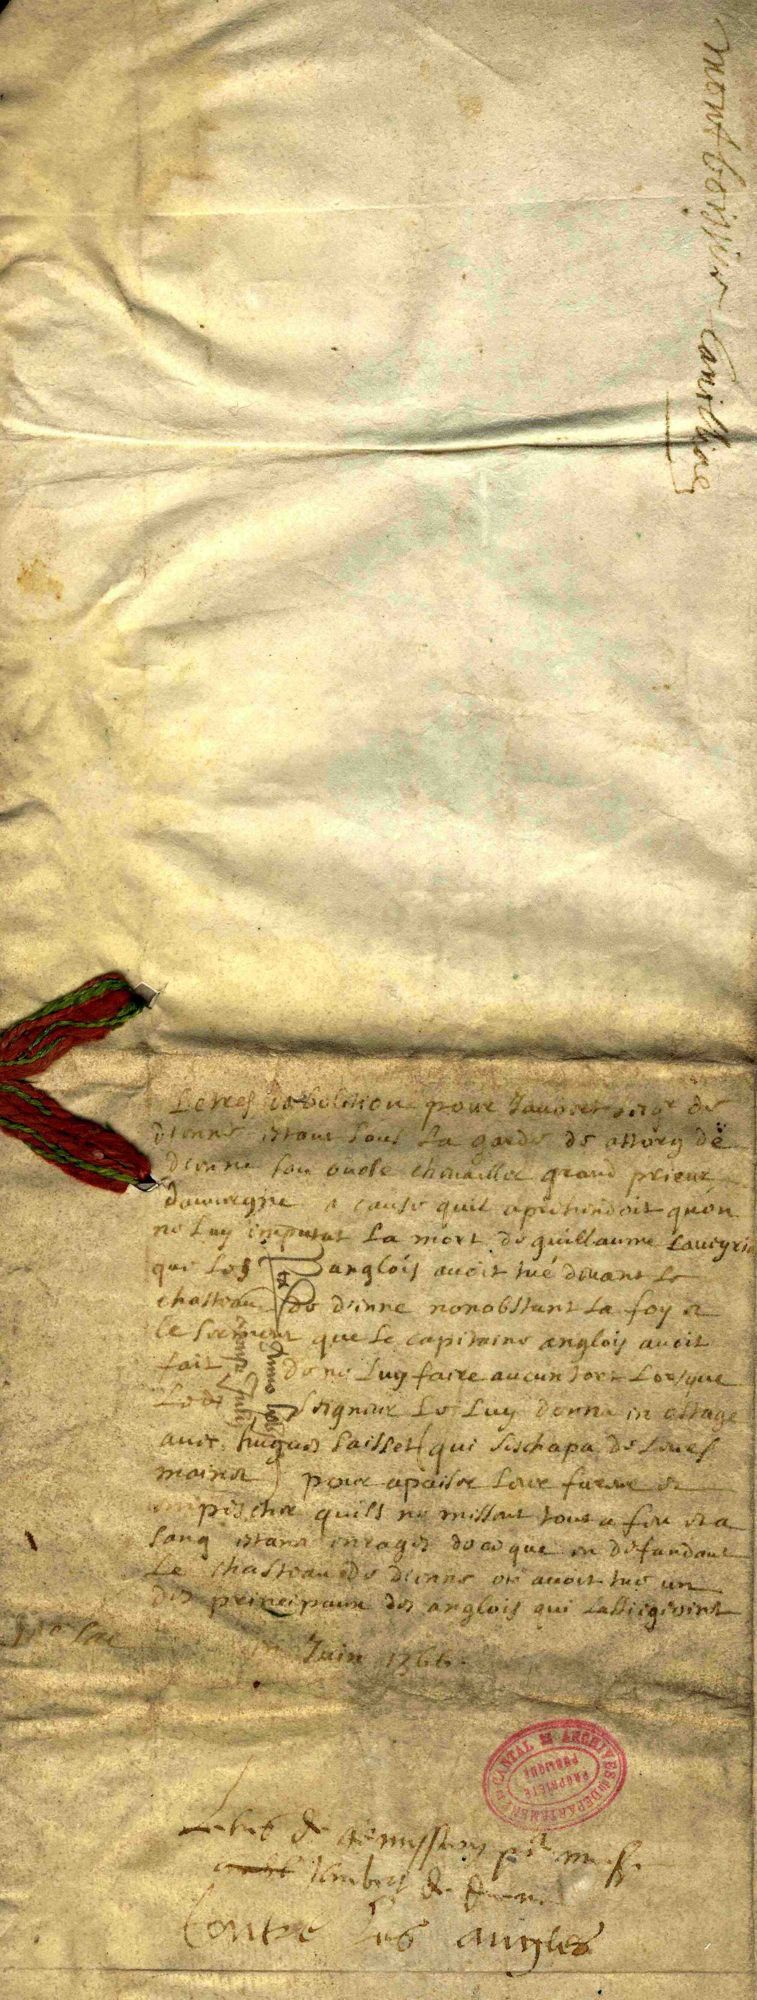 montboissier Canilliac
Letres d'abolition pour Jaubert seigr de
dienne estant sous la garde de amory de
dienne son oncle chevallier grand prieur
dauvergne a cause quil aprehendoit quon
ne luy imputat la mort de guillaume
que les anglois avoit tué devant le
chasteau de dienne nonobstant la foy et
le serment que le capitaine anglois avoit
fait de ne luy faire aucun tort lorsque
ledt seigneur le luy donna in ostage
avec hugues saisset (qui seschapa de leurs
mains) pour apaiser leur fureur et
empescher quils ne missent tout a feu et a
sang estans enrages de ce que en defandant
le chasteau de dienne on avoit tué un
des principaux des anglois qui lassiegeoint
en Juin 1366
anno
July
CANTAL
ARCHIVES DEPARTEMENTALES
PROPRIÉTÉ
PUBLIQUE
de remission pr
de
Contre les angles